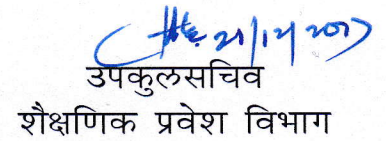 21/12/2017
उपकुलसचिव
शैक्षणिक प्रवेश विभाग